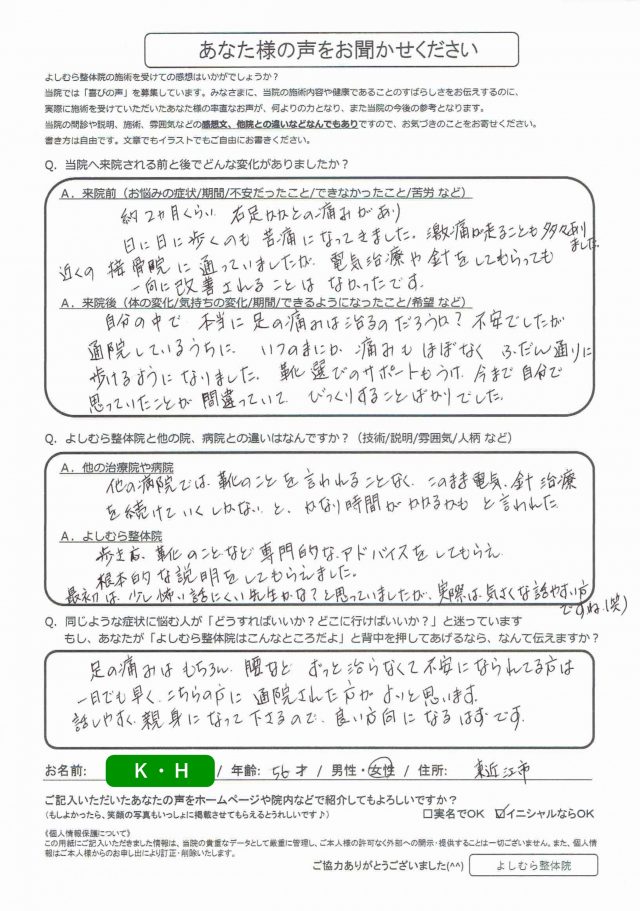 あなた様の声をお聞かせください
よしむら整体院の施術を受けての感想はいかがでしょうか？
当院では「喜びの声」を募集しています。みなさまに、当院の施術内容や健康であることのすばらしさをお伝えするのに、
実際に施術を受けていただいたあなた様の率直なお声が、何よりの力となり、また当院の今後の参考となります。
当院の問診や説明、施術、雰囲気などの感想文、他院との違いなどなんでもありですので、お気づきのことをお寄せください。
書き方は自由です。文章でもイラストでもご自由にお書きください。
Q．当院へ来院される前と後でどんな変化がありましたか？
A．来院前（お悩みの症状/期間/不安だったこと/できなかったこと/苦労 など）
約2ヶ月くらい 右足かかとの痛みがあり
日に日に歩くのも苦痛になってきました。激痛が走ることも多々ありました。
近くの接骨院に通っていましたが、電気治療や針をしてもらっても
一向に改善されることはなかったです。
A．来院後（体の変化/気持ちの変化/期間/できるようになったこと/希望 など）
自分の中で 本当に足の痛みは治るのだろうか？不安でしたが
通院しているうちに、いつのまにか 痛みもほぼなく ふだん通りに
歩けるようになりました。靴選びのサポートもうけ、今まで自分で
思っていたことが間違っていて、びっくりすることばかりでした。
Q．よしむら整体院と他の院、病院との違いはなんですか？（技術/説明/雰囲気/人柄 など）
A．他の治療院や病院
他の病院では、靴のことを言われることなく、このまま電気、針治療
を続けていくしかない と、かなり時間がかかるかも と言われた
A．よしむら整体院
歩き方、靴のことなど専門的なアドバイスをしてもらえ
根本的な説明をしてもらえました。
最初は、少し怖い話にくい先生かな？と思っていましたが、実際は気さくな話やすい方ですね(笑)
Q．同じような症状に悩む人が「どうすればいいか？どこに行けばいいか？」と迷っています
もし、あなたが「よしむら整体院はこんなところだよ」と背中を押してあげるなら、なんて伝えますか？
足の痛みはもちろん、腰など ずっと治らなくて不安になられてる方は
一日でも早く、こちらの方に通院された方がよいと思います。
話しやすく、親身になって下さるので、良い方向になるはずです。
お名前： K・H / 年齢: 56才 / 男性・女性 / 住所： 東近江市
ご記入いただいたあなたの声をホームページや院内などで紹介してもよろしいですか？
（もしよかったら、笑顔の写真もいっしょに掲載させてもらえるとうれしいです♪） □実名でOK ☑イニシャルならOK
《個人情報保護について》
この用紙にご記入いただきました情報は、当院の貴重なデータとして厳重に管理し、ご本人様の許可なく外部への開示・提供することは一切ございません。また、個人情
報はご本人様からのお申し出により訂正・削除いたします。
ご協力ありがとうございました(^^) よしむら整体院